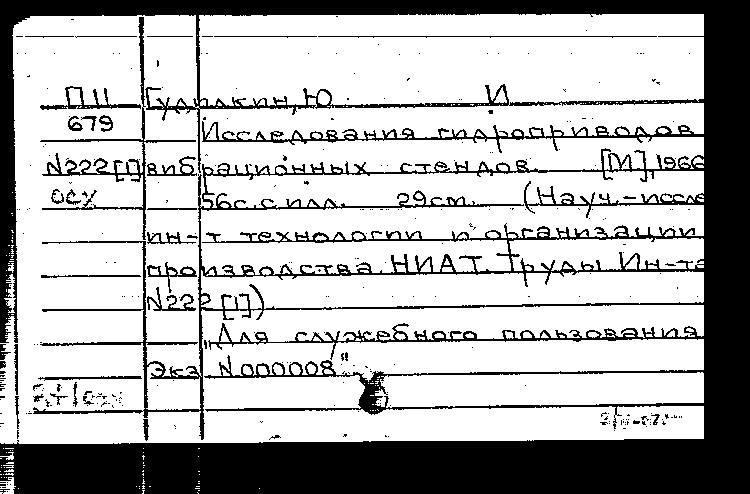 П11 Гудилкин, Ю И
679 Исследования гидроприводов
N222[1] вибрационных стендов. [М], 1966
осх 56с. с илл. 29см. (Науч.-иссле
ин-т технологии и организации
производства НИАТ. Труды Ин-та
N222 [1])
„Для служебного пользования
Экз N000008"
3+1осх